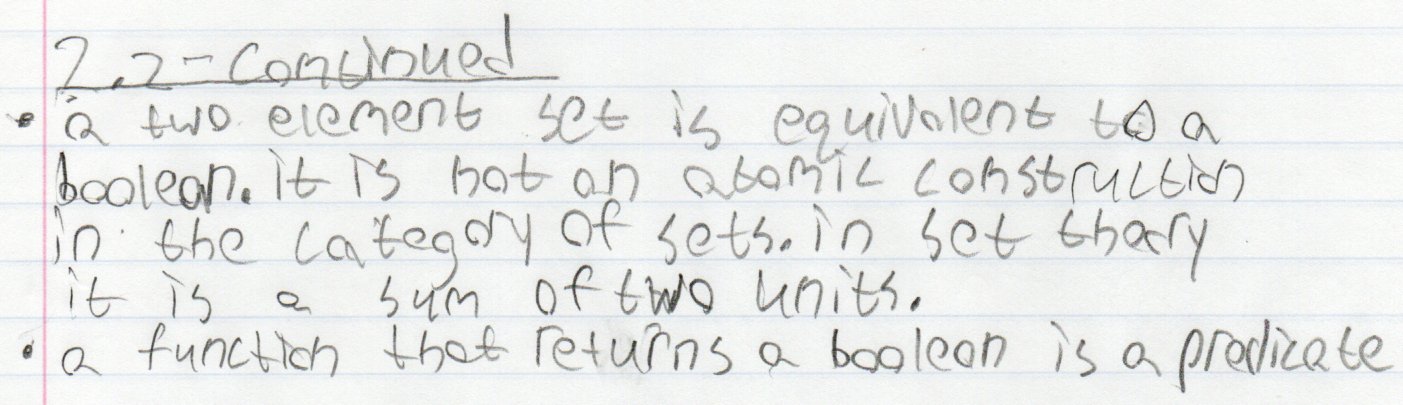 2.2-Continued
• a two element set is equivalent to a
boolean. it is not an atomic construction
in the category of sets. in set theory
it is a sum of two units.
• a function that returns a boolean is a predicate